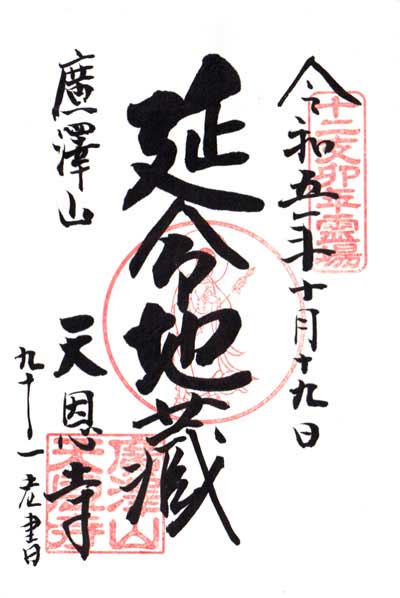 十二支卯年霊場
令和五年十月十九日
延命地蔵
廣澤山
天恩寺
九十一老書
廣澤山
天恩寺